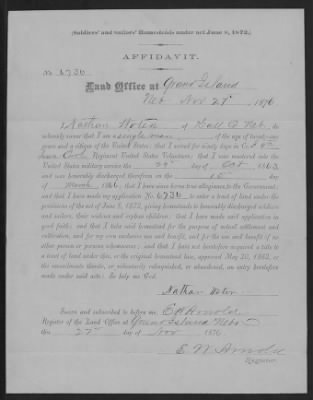 (Soldiers' and Sailors' Homesteads under act June 8, 1872.)
AFFIDAVIT.
No. 6736
Land Office at Grand Island
Neb Nov 27th 1876
I, Nathan Woten, of Co Neb, do
solemnly swear that I am a single man of
years and a citizen of the United States; that I served for ninety days in Co. 4th
Iowa Cav'y Regiment United States Volunteers; that I was mustered into the
United States military service the 29th day of Oct 1863
and was honorably discharged therefrom on the 10th day
of March 1866; that I have since borne true allegiance to the Government;
and that I have made my application No. 6736 to enter a tract of land under the
provisions of the act of June 8, 1872, giving homesteads to honorably discharged soldiers
and sailors, their widows and orphan children; that I have made said application in
good faith; and that I take said homestead for the purpose of actual settlement and
cultivation, and for my own exclusive use and benefit, and for the use and benefit of no
other person or persons whomsoever; and that I have not heretofore acquired a title to
a tract of land under this, or the original homestead law, approved May 20, 1862, or
the amendments thereto, or voluntarily relinquished, or abandoned, an entry heretofore
made under said acts: So help me God.
Nathan Woten
Sworn and subscribed to before me, E W Arnold
Register of the Land Office at Grand Island Neb
this 27th day of Nov 1876
E. W. Arnold
Register.